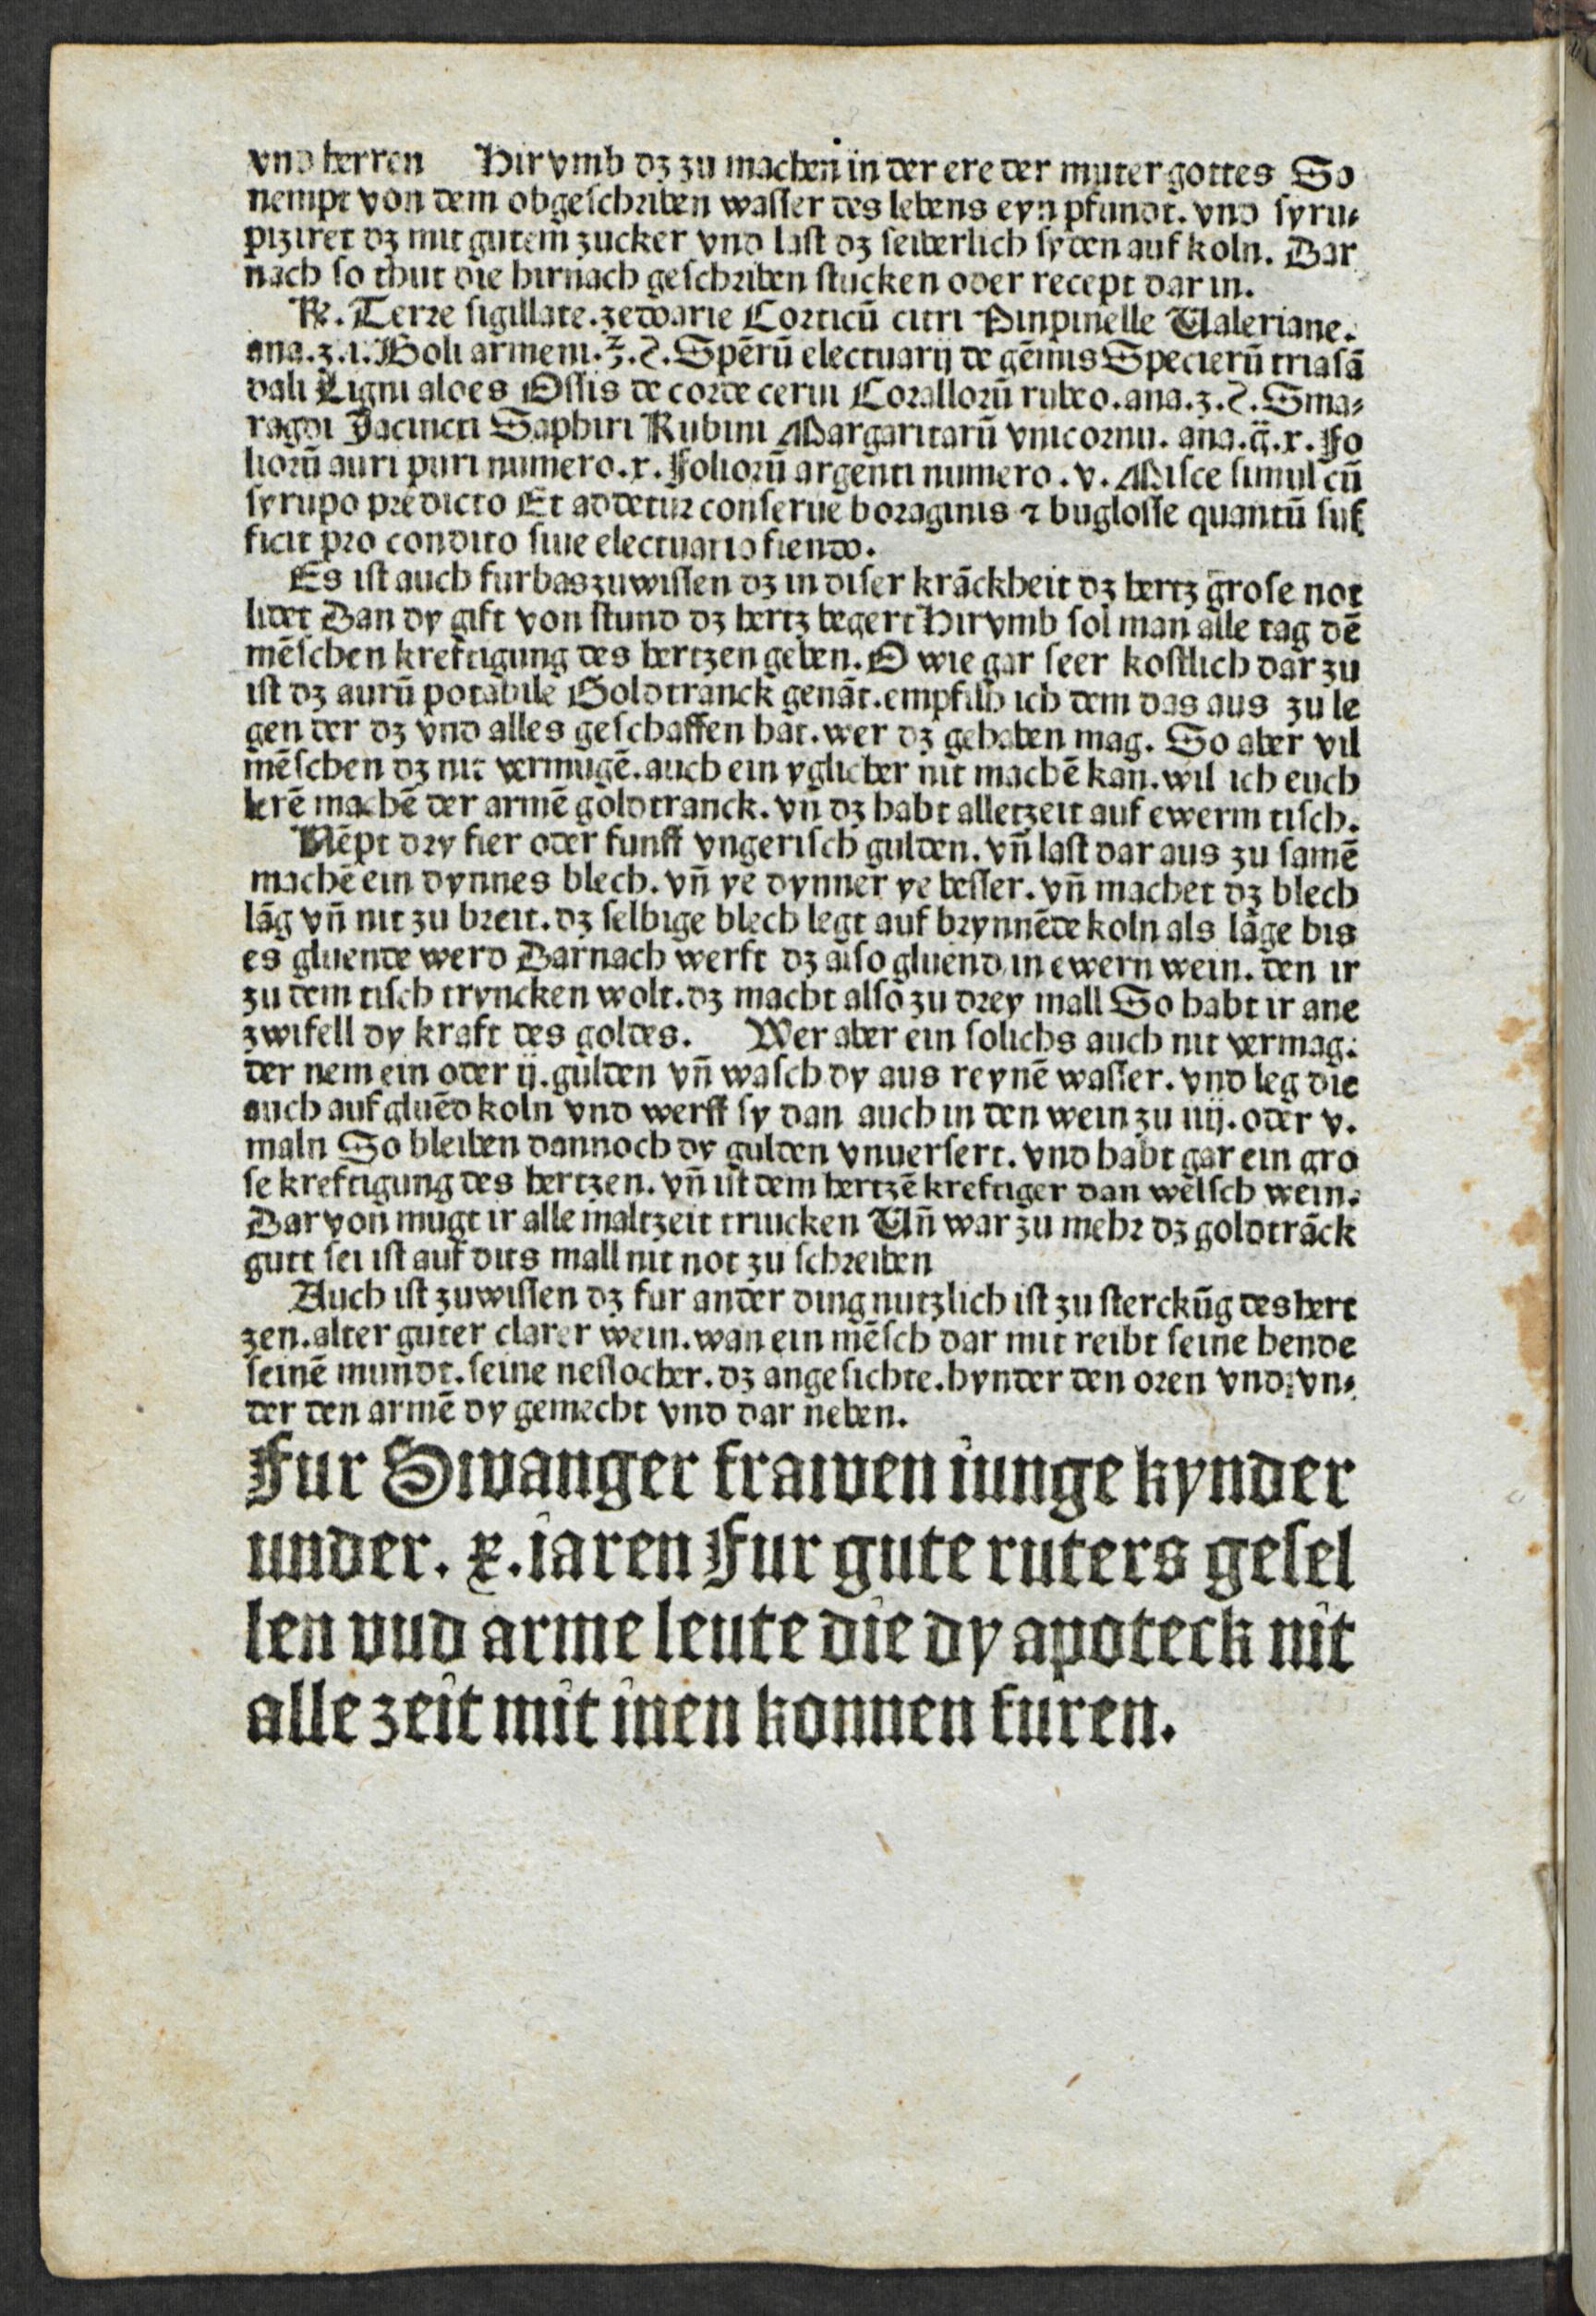 vnd herren Hirvmb dz zu machen in der ere der muter gottes So
nempt von dem obgeschriben wasser des lebens eyn pfundt. vnd syru⸗
piziret dz mit gutem zucker vnd last dz seiberlich syden auf koln. Dar
nach so thut die hirnach geschriben stucken oder recept dar in.
℞. Terre sigillate. zedoarie Corticū citri Pinpinelle Ualeriane.
ana. ʒ. i. Boli armeni. ℥. ẜ. Spērū electuarij de gēmis Specierū triasā
dali Ligni aloes Ossis de corde cerui Corallorū rubeo. ana. ʒ. ẜ. Sma⸗
ragdi Jacincti Saphiri Rubini Margaritarū vnicornu. ana. g̈. x. Fo
liorū auri puri numero. x. Foliorū argenti numero. v. Misce simul cū
syrupo predicto Et addetur conserue boraginis ⁊ buglosse quantū suf
ficit pro condito siue electuario fiendo.
Es ist auch furbas zuwissen dz in diser krāckheit dz hertz grose not
lidet Dan dy gift von stund dz hertz begert Hirvmb sol man alle tag dē
mēschen kreftigung des hertzen geben. O wie gar seer kostlich dar zu
ist dz aurū potabile Goldtranck genāt. empfilh ich dem das aus zu le
gen der dz vnd alles geschaffen hat. wer dz gehaben mag. So aber vil
mēschen dz nit vermugē. auch ein yglicher nit machē kan. wil ich euch
lerē machē der armē goldtranck. vn̄ dz habt alletzeit auf ewerm tisch.
Nēpt dry fier oder funff vngerisch gulden. vn̄ last dar aus zu samē
machē ein dynnes blech. vn̄ ye dynner ye besser. vn̄ machet dz blech
lāg vn̄ nit zu breit. dz selbige blech legt auf brynnēde koln als lāge bis
es gluende werd Darnach werft dz also gluend in ewern wein. den ir
zu dem tisch tryncken wolt. dz macht also zu drey mall So habt ir ane
zwifell dy kraft des goldes. Wer aber ein solichs auch nit vermag.
der nem ein oder ij. gulden vn̄ wasch dy aus reynē wasser. vnd leg die
auch auf gluēd koln vnd werff sy dan auch in den wein zu iiij. oder v.
maln So bleiben dannoch dy gulden vnuersert. vnd habt gar ein gro
se kreftigung des hertzen. vn̄ ist dem hertzē kreftiger dan welsch wein.
Dar von mugt ir alle maltzeit trincken Un̄ war zu mehr dz goldtrāck
gutt sei ist auf dits mall nit not zu schreiben
Auch ist zuwissen dz fur ander ding nutzlich ist zu sterckūg des hert
zen. alter guter clarer wein. wan ein mēsch dar mit reibt seine hende
seinē mundt. seine neslocher. dz angesichte. hynder den oren vnd vn⸗
der den armē dy gemecht vnd dar neben.
Fur Swanger frawen iunge kynder
under. x. iaren Fur gute ruters gesel
len vnd arme leute die dy apoteck nit
alle zeit mit inen konnen furen.